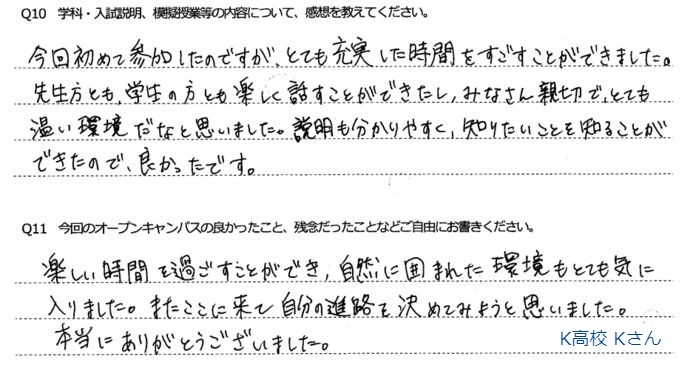 Q10 学科・入試説明、模擬授業等の内容について、感想を教えてください。
今回初めて参加したのですが、とても充実した時間をすごすことができました。
先生方とも、学生の方とも楽しく話すことができたし、みなさん親切で、とても
温い環境だなと思いました。説明も分かりやすく、知りたいことを知ることが
できたので、良かったです。
Q11 今回のオープンキャンパスの良かったこと、残念だったことなどご自由にお書きください。
楽しい時間を過ごすことができ、自然に囲まれた環境もとても気に
入りました。またここに来て自分の進路を決めてみようと思いました。
本当にありがとうございました。
K高校 Kさん